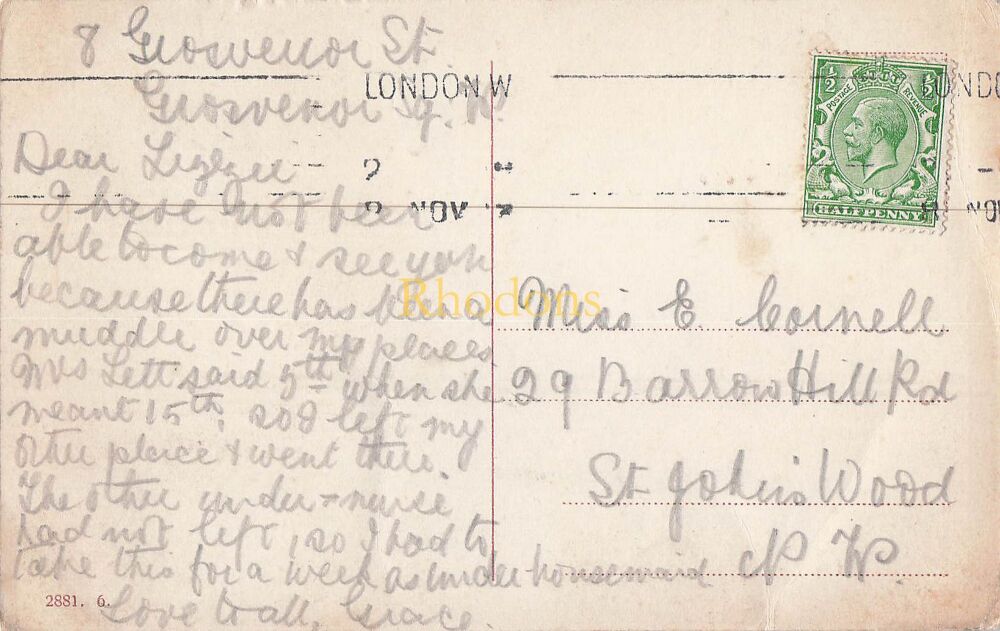 8 Grosvenor St.
Grosvenor Sq. W.
Dear Lizzie
I have not been
able to come & see you
because there has been a
muddle over my places
Mrs Lett said 5th when she
meant 15th. so I left my
other place & went there.
The other under-nurse
had not left, so I had to
take this for a week as under housemaid
Love to all, Grace.
2881. 6.
LONDON W
NOV
POSTAGE REVENUE
½ ½
HALFPENNY
LONDON
NOV
Miss E. Cornell
29 Barrow Hill Rd
St John's Wood
N W.
Rhodons